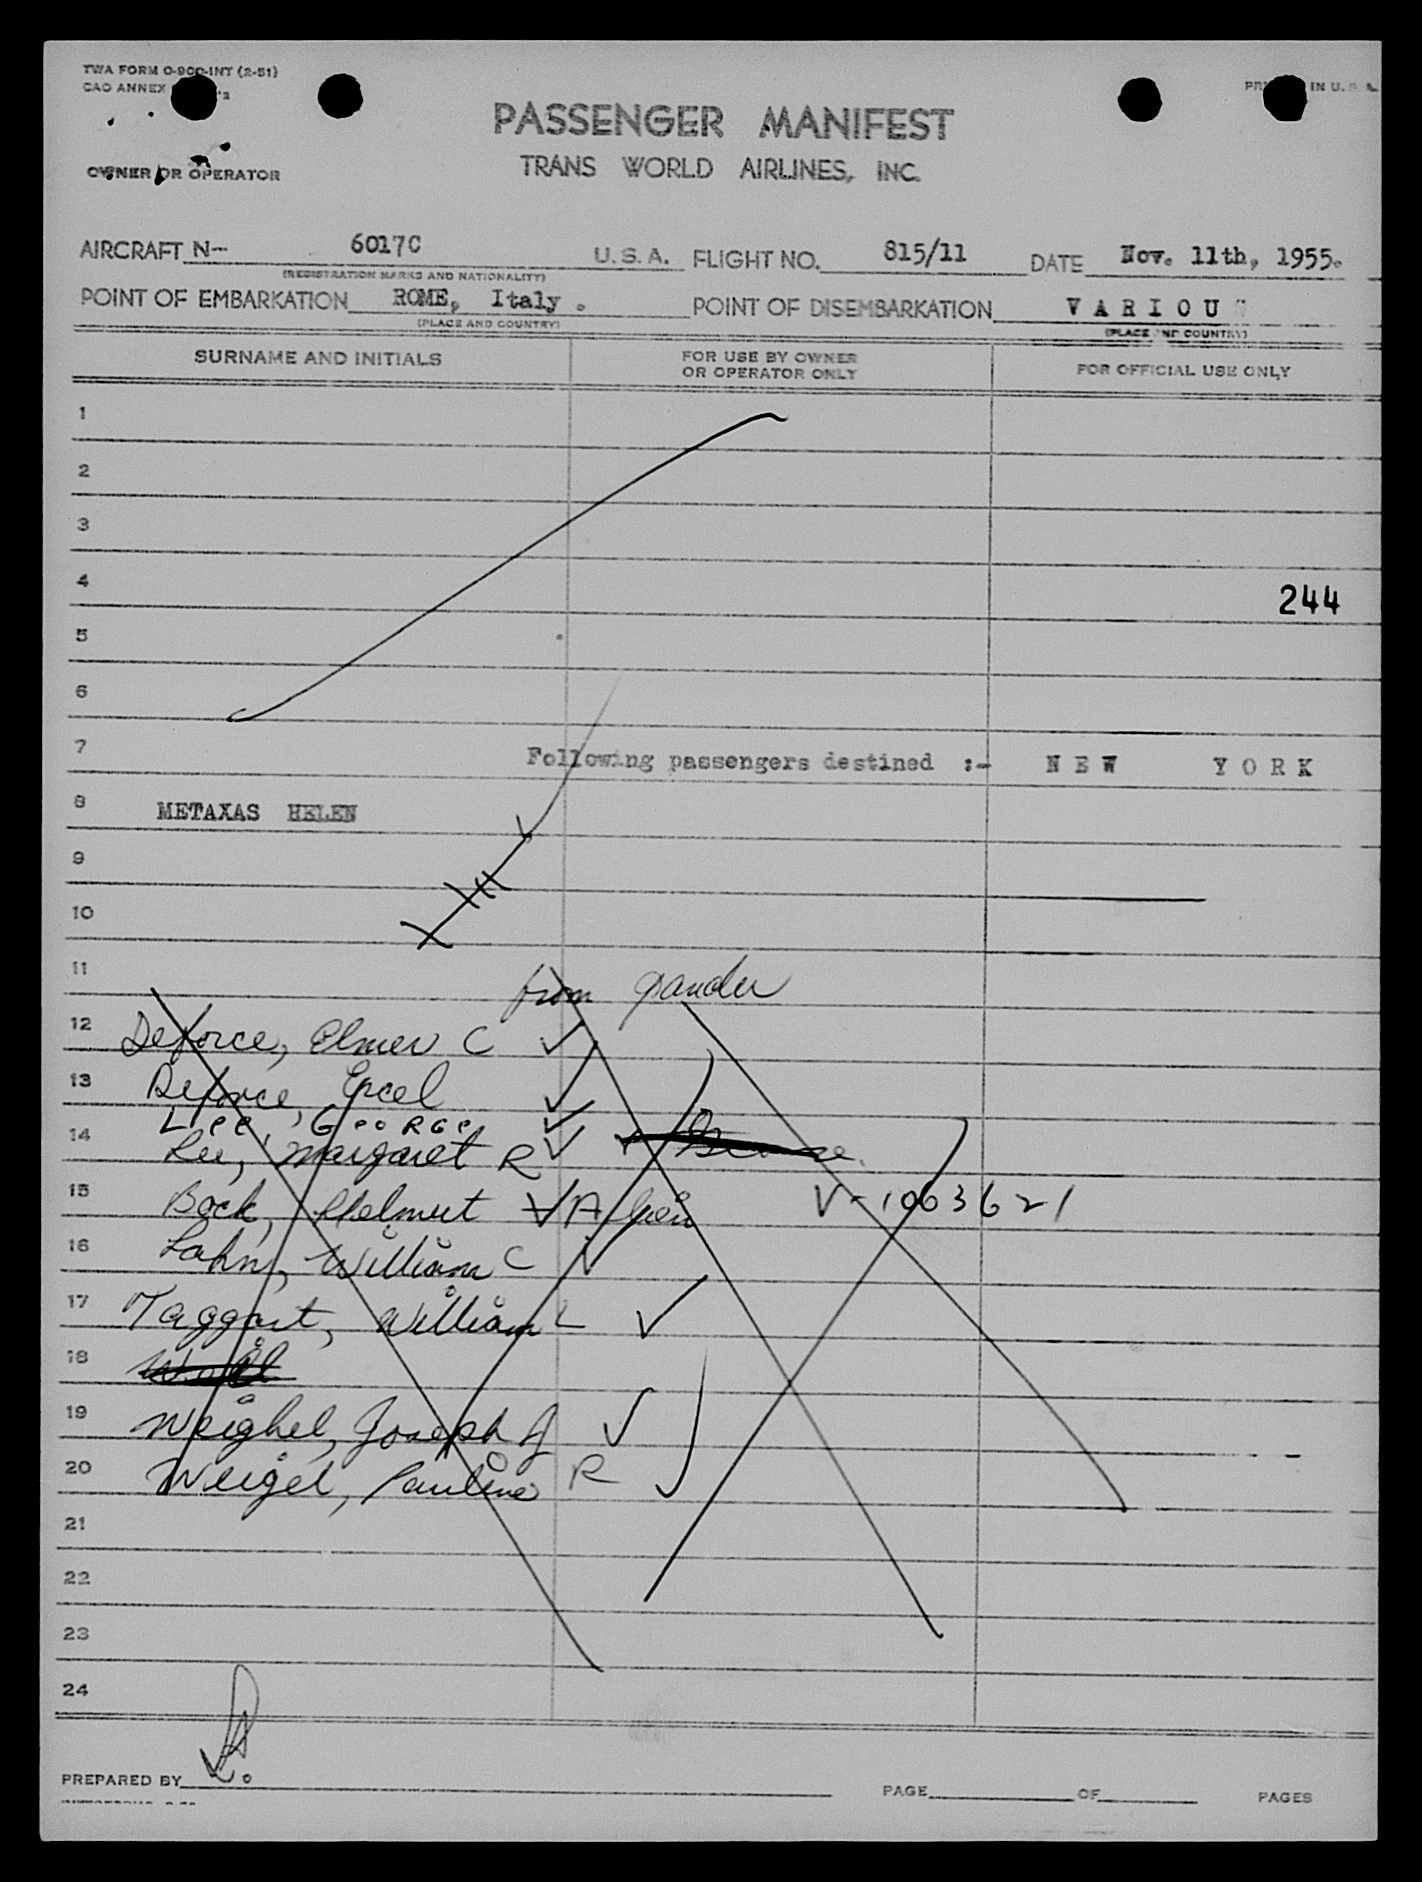 TWA FORM O-900-INT (2-51)
CAO ANNEX
IN U. S. A.
PASSENGER MANIFEST
TRANS WORLD AIRLINES, INC.
OWNER OR OPERATOR
AIRCRAFT N- 6017C U.S.A. FLIGHT NO. 815/11 DATE Nov. 11th, 1955.
(REGISTRATION MARKS AND NATIONALITY)
POINT OF EMBARKATION ROME, Italy . POINT OF DISEMBARKATION VARIOU
(PLACE AND COUNTRY) (PLACE AND COUNTRY)
SURNAME AND INITIALS FOR USE BY OWNER OR OPERATOR ONLY FOR OFFICIAL USE ONLY
1
2
3
4 244
5
6
7 Following passengers destined :- NEW YORK
8 METAXAS HELEN
9
10
11 from gander
12 Deforce, Elmer C
13 Deforce, Excel
Lee, George
14 Lee, Margaret R
15 Bock, Helmut Alien V-1003621
16 Lahn, William C
17 Taggart, William L
18
19 Weighel, Joseph J
20 Weigel, Pauline R
21
22
23
24
PREPARED BY PAGE OF PAGES